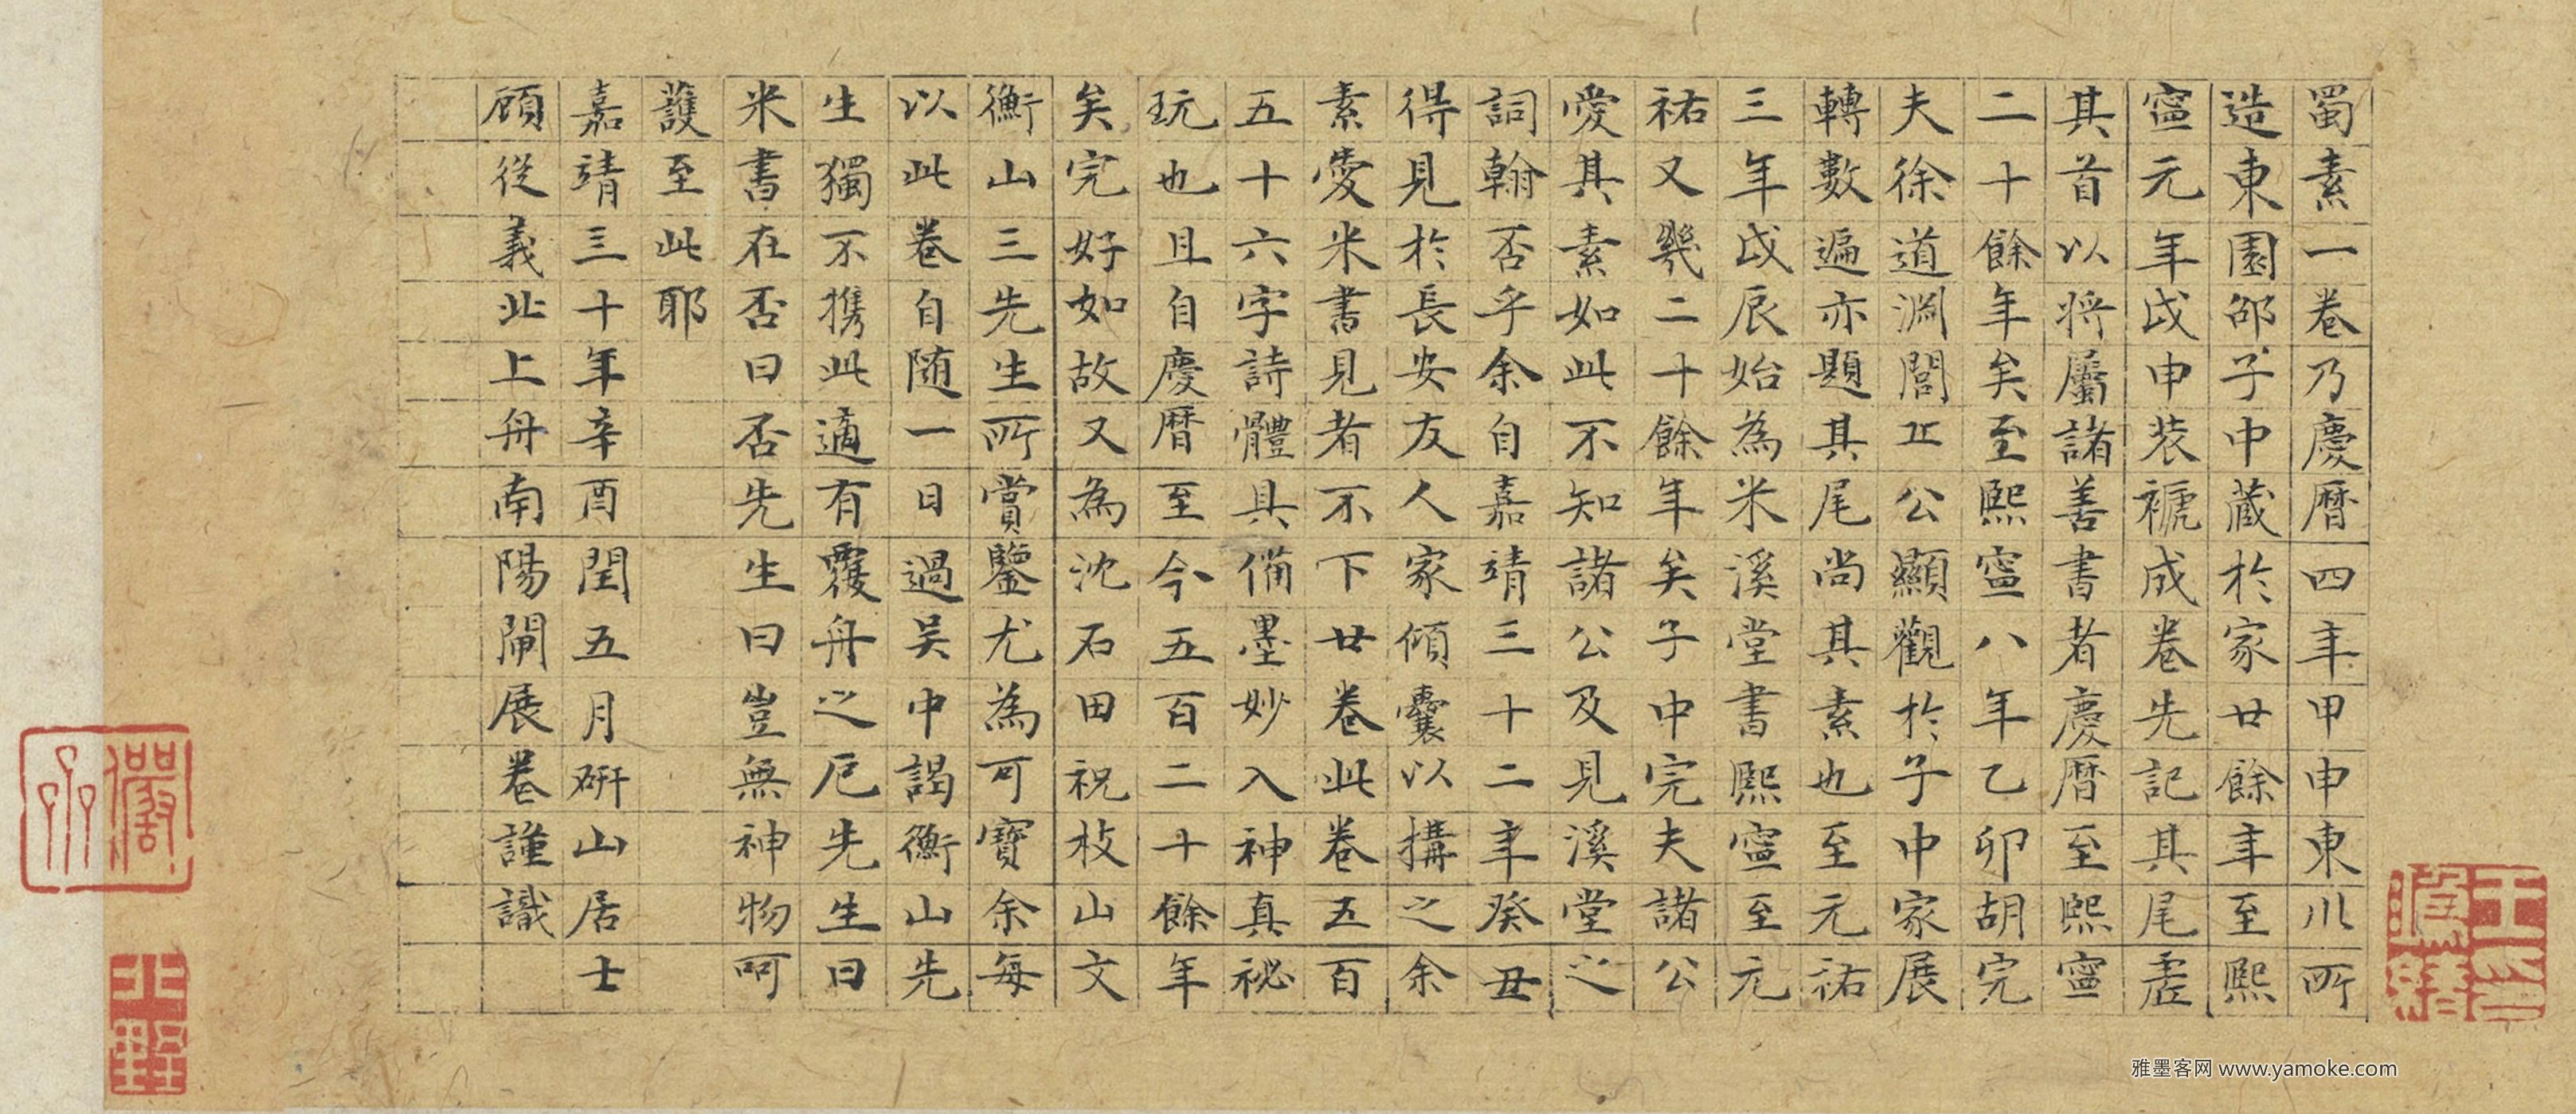 蜀素一卷乃慶曆四年甲申東川所
造東園邵子中藏於家廿餘年至熙
寧元年戊申裝褫成卷先記其尾虛
其首以將屬諸善書者慶曆至熙寧
二十餘年矣至熙寧八年乙卯胡完
夫徐道淵閭丘公顯觀於子中家展
轉數遍亦題其尾尚其素也至元祐
三年戊辰始為米溪堂書熙寧至元
祐又幾二十餘年矣子中完夫諸公
愛其素如此不知諸公及見溪堂之
詞翰否乎余自嘉靖三十二年癸丑
得見於長安友人家傾囊以搆之余
素愛米書見者不下廿卷此卷五百
五十六字詩體具備墨妙入神真祕
玩也且自慶曆至今五百二十餘年
矣完好如故又為沈石田祝枝山文
衡山三先生所賞鑒尤為可寶余每
以此卷自随一日過吴中謁衡山先
生獨不携此適有覆舟之厄先生曰
米書在否曰否先生曰豈無神物呵
護至此耶
嘉靖三十年辛酉閏五月研山居士
顧從義北上舟南陽閘展卷謹識
雅墨客网 www.yamoke.com